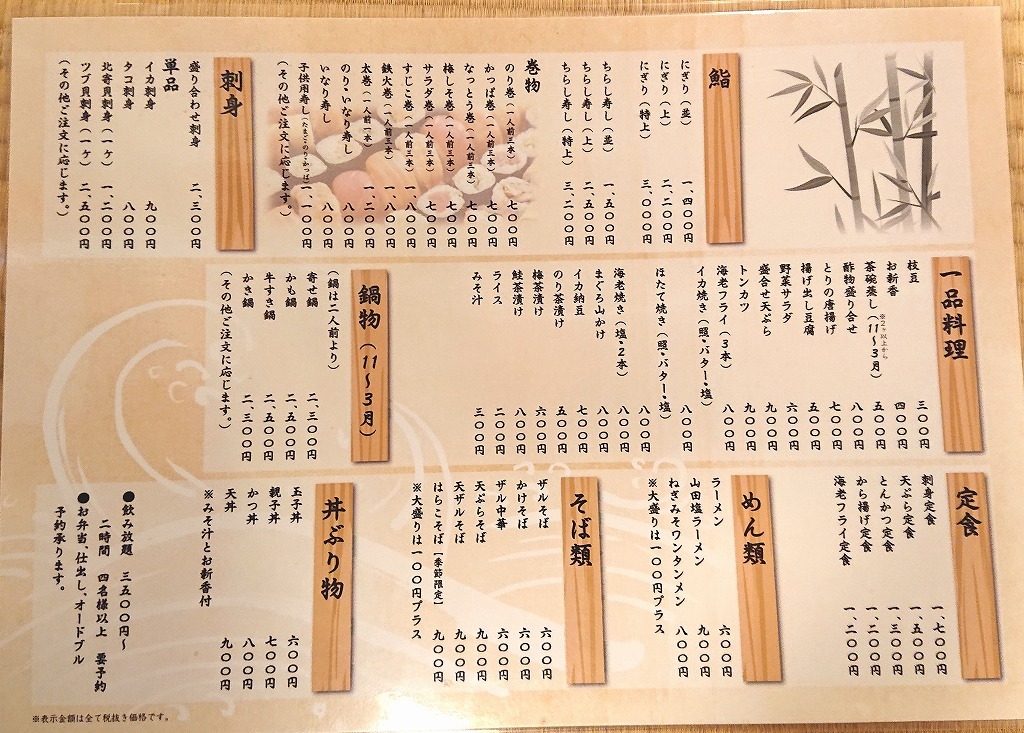 鮨
にぎり(並) 一、四〇〇円
にぎり(上) 二、二〇〇円
にぎり(特上) 三、〇〇〇円
ちらし寿し(並) 一、五〇〇円
ちらし寿し(上) 二、一〇〇円
ちらし寿し(特上) 三、二〇〇円
巻物
のり巻(一人前三本) 七〇〇円
かっぱ巻(一人前三本) 七〇〇円
なっとう巻(一人前三本) 七〇〇円
梅しそ巻(一人前三本) 七〇〇円
サラダ巻(一人前三本) 七〇〇円
すじこ巻(一人前三本) 一、八〇〇円
鉄火巻(一人前三本) 一、二〇〇円
太巻(一人前一本) 一、二〇〇円
のり・いなり寿し 八〇〇円
いなり寿し 八〇〇円
子供用寿し(たまごのりかっぱ) 一、一〇〇円
(その他ご注文に応じます。)
刺身
盛り合わせ刺身 二、三〇〇円
単品
イカ刺身 九〇〇円
タコ刺身 八〇〇円
北寄貝刺身(一ケ) 一、二〇〇円
ツブ貝刺身(一ケ) 二、五〇〇円
(その他ご注文に応じます。)
一品料理
枝豆 三〇〇円
お新香 四〇〇円
茶碗蒸し(11〜3月) ※2ヶ以上から 五〇〇円
酢物盛り合せ 八〇〇円
とりの唐揚げ 七〇〇円
揚げ出し豆腐 五〇〇円
野菜サラダ 六〇〇円
盛合せ天ぷら 九〇〇円
トンカツ 九〇〇円
海老フライ(3本) 八〇〇円
イカ焼き(照・バター・塩) 八〇〇円
ほたて焼き(照・バター・塩) 八〇〇円
海老焼き(塩・2本) 八〇〇円
まぐろ山かけ 八〇〇円
イカ納豆 七〇〇円
のり茶漬け 五〇〇円
梅茶漬け 六〇〇円
鮭茶漬け 八〇〇円
ライス 二〇〇円
みそ汁 三〇〇円
鍋物(11〜3月)
(鍋は二人前より)
寄せ鍋 二、三〇〇円
かも鍋 二、五〇〇円
牛すき鍋 二、五〇〇円
かき鍋 二、三〇〇円
(その他ご注文に応じます。)
定食
刺身定食 一、七〇〇円
天ぷら定食 一、五〇〇円
とんかつ定食 一、三〇〇円
から揚げ定食 一、二〇〇円
海老フライ定食 一、二〇〇円
めん類
ラーメン 六〇〇円
山田塩ラーメン 九〇〇円
ねぎみそワンタンメン 八〇〇円
※大盛りは一〇〇円プラス
そば類
ザルそば 六〇〇円
かけそば 六〇〇円
ザル中華 六〇〇円
天ぷらそば 九〇〇円
天ザルそば 九〇〇円
はらこそば[季節限定] 九〇〇円
※大盛りは一〇〇円プラス
丼ぶり物
玉子丼 六〇〇円
親子丼 七〇〇円
かつ丼 八〇〇円
天丼 九〇〇円
※みそ汁とお新香付
●飲み放題 三五〇〇円〜
二時間 四名様以上 要予約
●お弁当、仕出し、オードブル
予約承ります。
※表示金額は全て税抜き価格です。